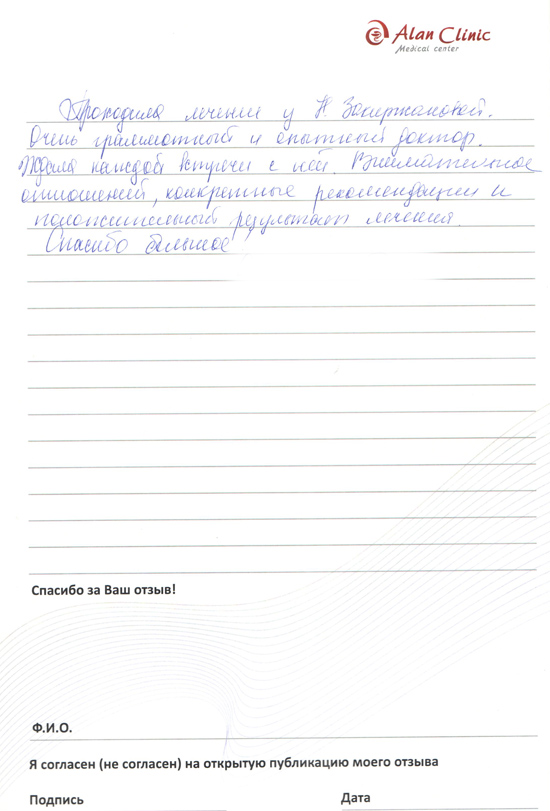 Alan Clinic
Medical center
Проходила лечение у Н. Закиржановой.
Очень грамотный и опытный доктор.
Ждала каждой встречи с ней. Внимательное
отношений, конкретные рекомендации и
положительный результат лечения.
Спасибо большое!
Спасибо за Ваш отзыв!
Ф.И.О.
Я согласен (не согласен) на открытую публикацию моего отзыва
Подпись Дата